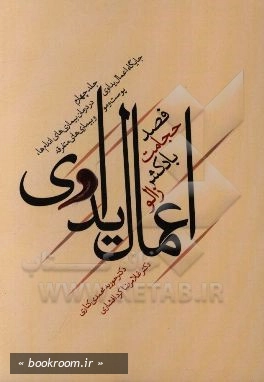 جایگاه اعمال یداوی
جلد چهارم
در درمان بیماری‌های اندام‌ها،
پوست و مو
و بیماری‌های متفرقه
فصد
حجامت
بادکش
زالو
اعمال یداوی
دکتر
دکتر غلامرضا کردافشاری
www.KETAB.IR
« bookroom.ir »